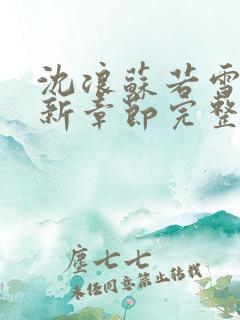 沈浪蘇若雪
新章節完整
塵七七
未经同意禁止转载